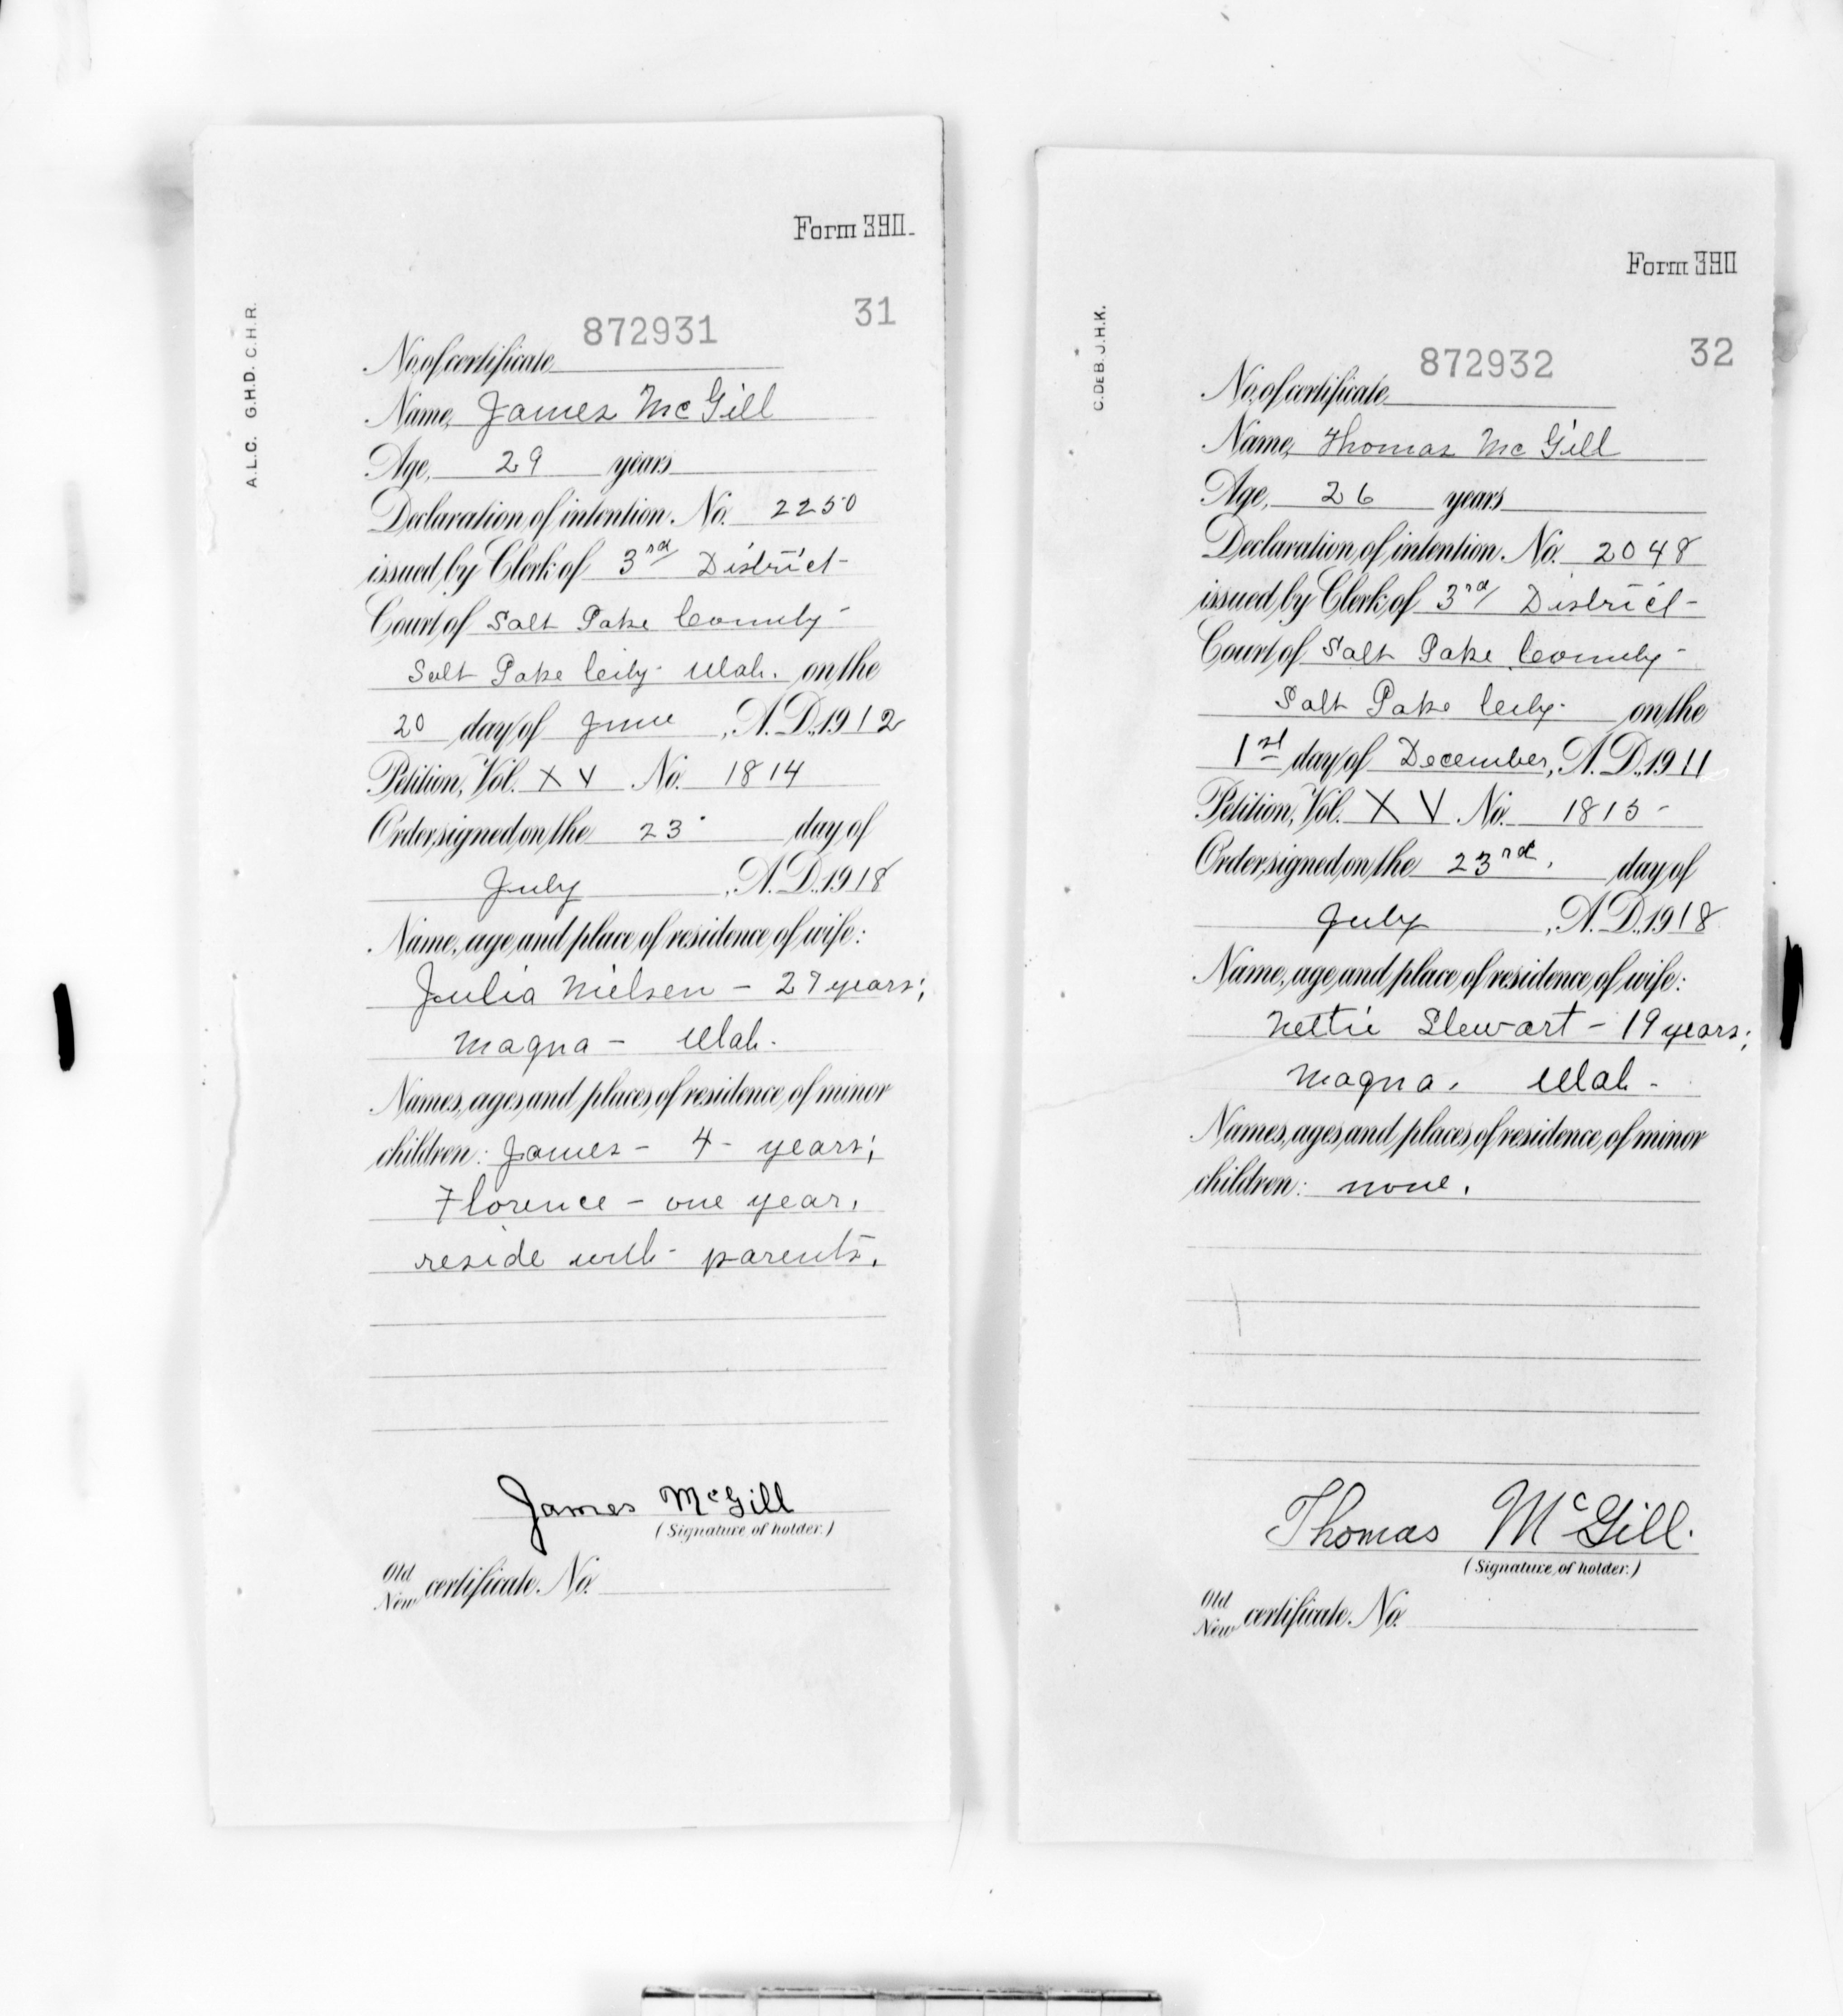 Form 390.
A.L.C. G.H.D. C.H.R.
31
872931
No. of certificate
Name, James McGill
Age, 29 years
Declaration of intention No. 2250
issued by Clerk of 3rd District
Court of Salt Lake County
Salt Lake City Utah. on the
20 day of June, A.D. 1912
Petition, Vol. XV No. 1814
Order signed on the 23 day of
July, A.D. 1918
Name, age and place of residence of wife:
Julia Nielsen - 27 years;
Magna - Utah.
Names, ages and places of residence of minor
children: James - 4 - years;
Florence - one year,
reside with parents.
James McGill
(Signature of holder.)
Old
New certificate No.
Form 390
C.DEB. J.H.K.
32
872932
No. of certificate
Name, Thomas McGill
Age, 26 years
Declaration of intention No. 2048
issued by Clerk of 3rd District
Court of Salt Lake County
Salt Lake City on the
1st day of December, A.D. 1911
Petition, Vol. XV No. 1815
Order signed on the 23rd. day of
July, A.D. 1918
Name, age and place of residence of wife:
Nettie Stewart - 19 years;
Magna, Utah -
Names, ages and places of residence of minor
children: none.
Thomas McGill.
(Signature of holder.)
Old
New certificate No.